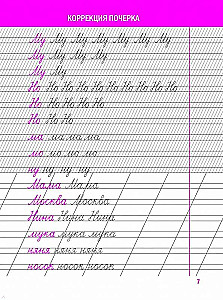 КОРРЕКЦИЯ ПОЧЕРКА
Му Му Му Му Му Му Му
Му Му Му Му
Му Му
Но Но Но Но Но Но Но Но
Но Но Но Но
Но Но Но
ма ма ма ма
мо мо мо мо
ну ну ну ну
Мама Мама
Москва Москва
Нина Нина Нина
мука мука мука
няня няня няня
носок носок носок
7